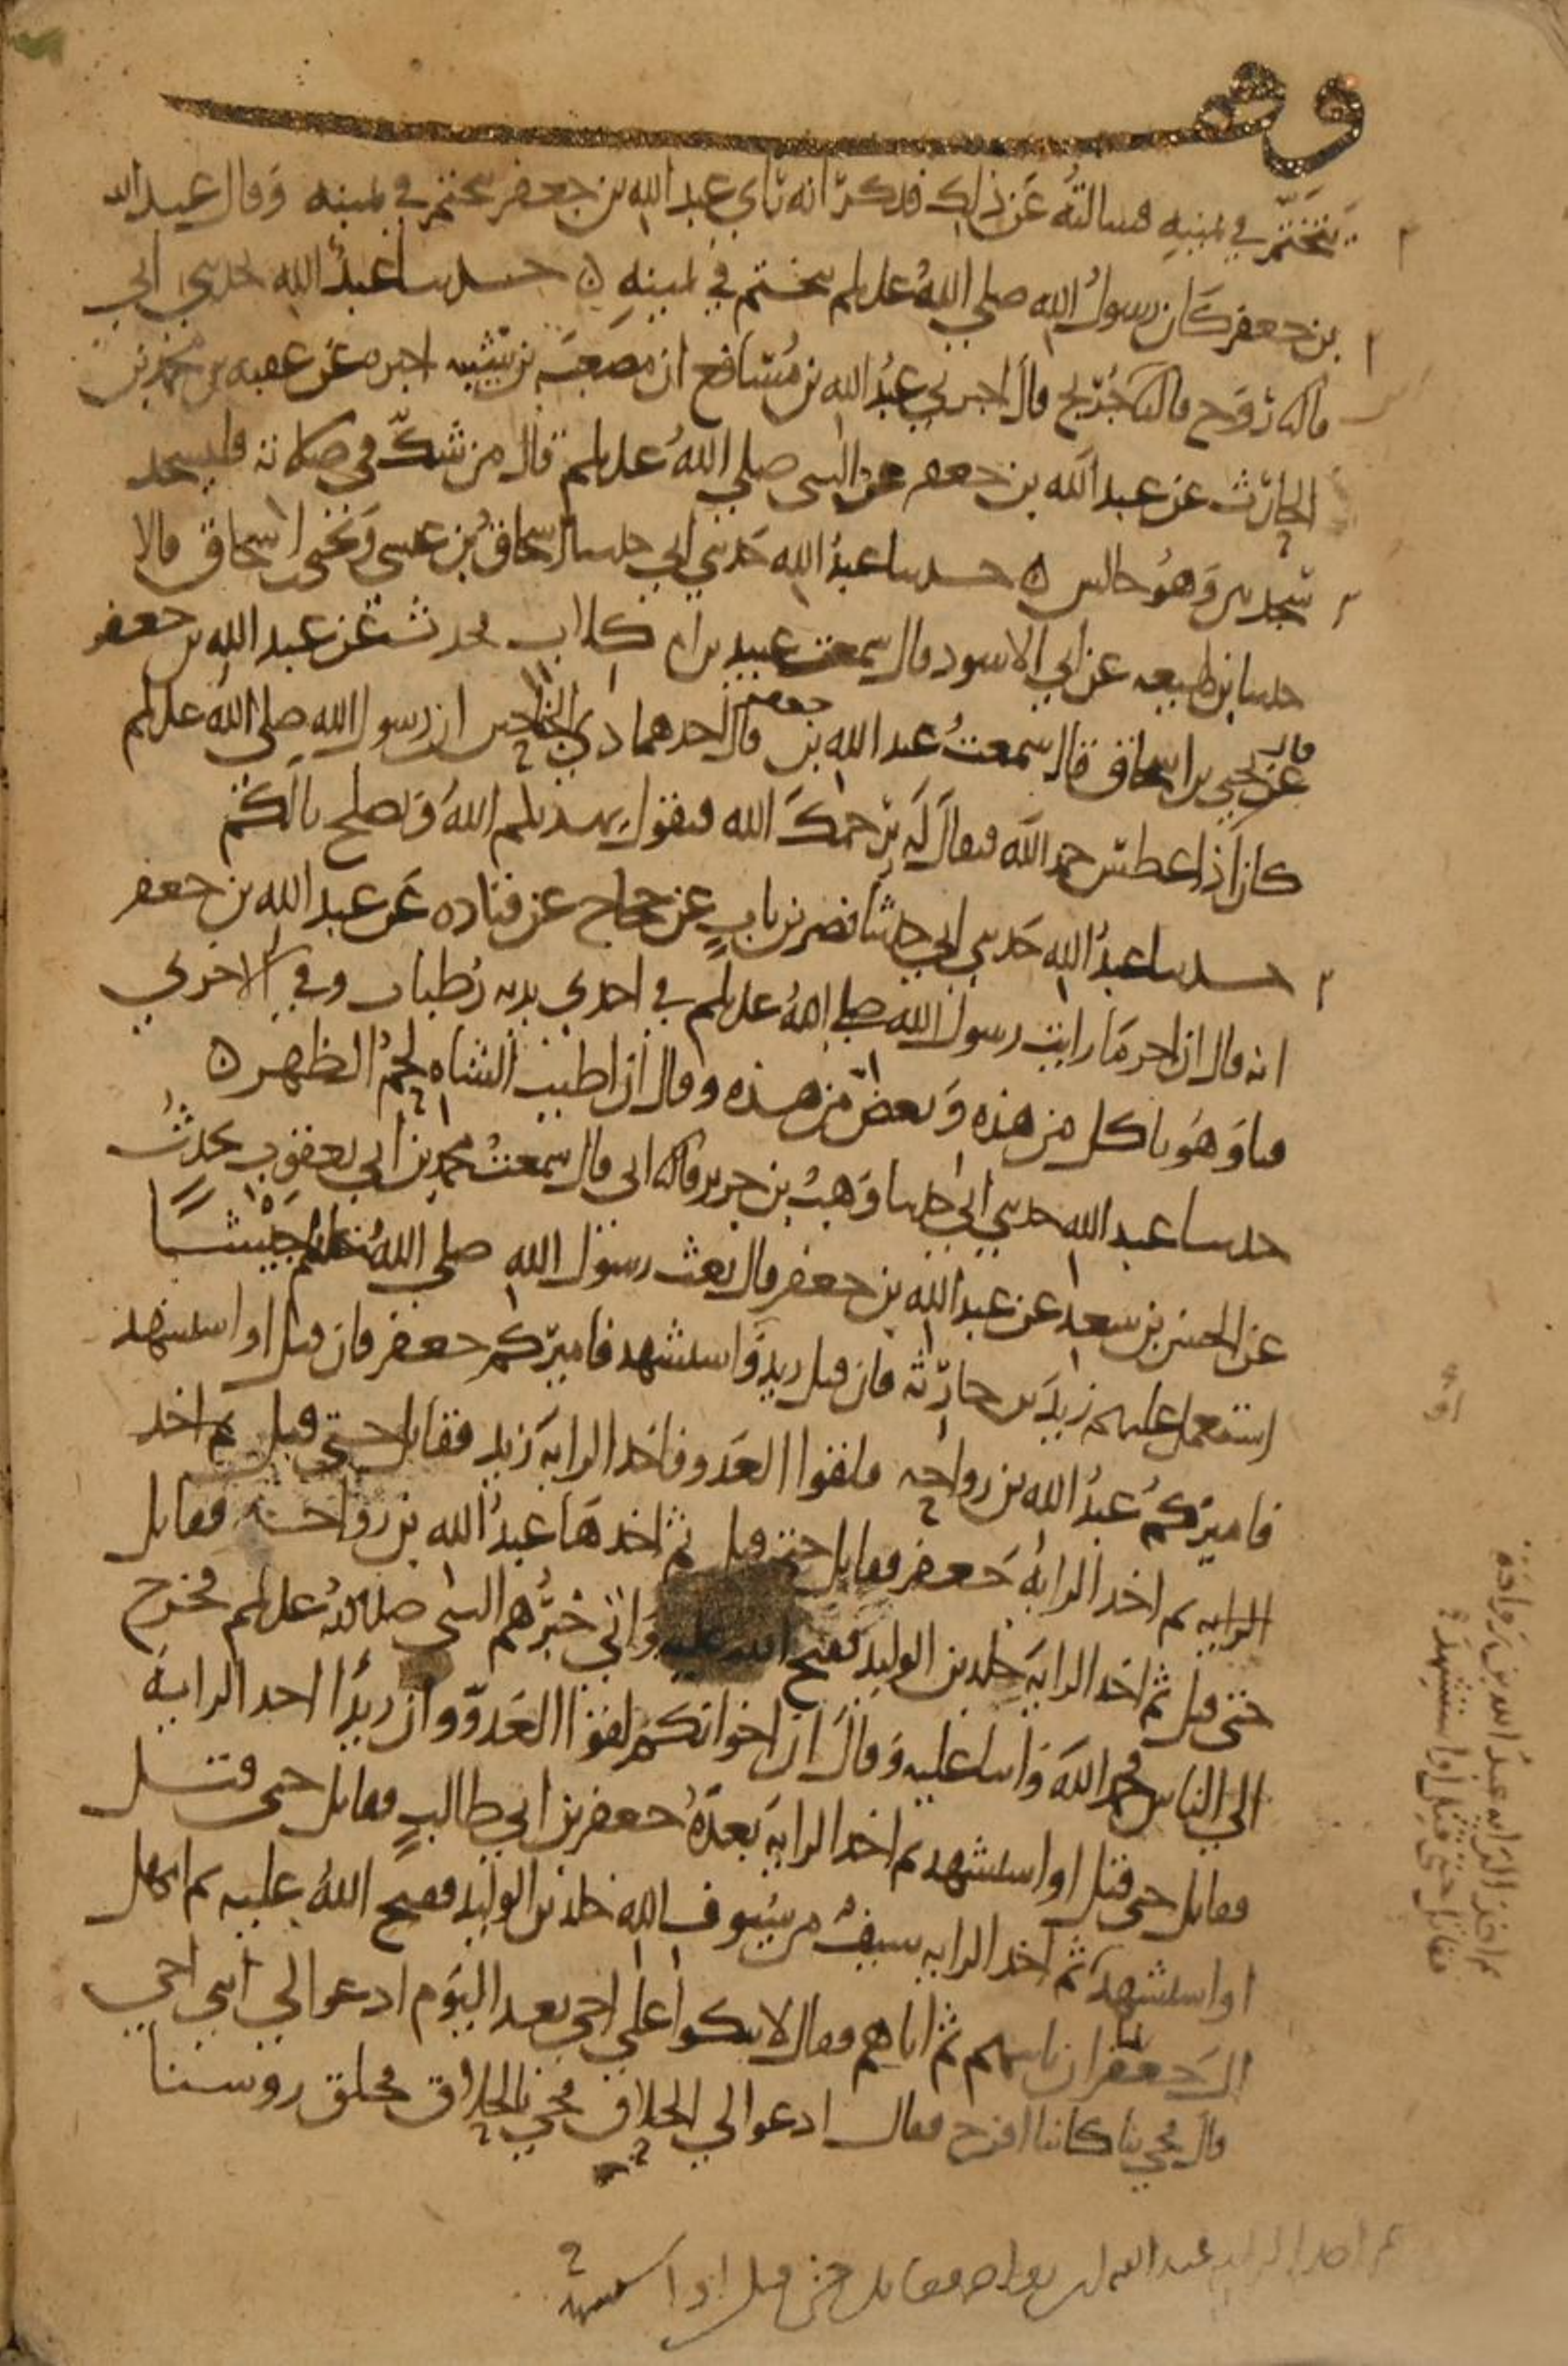 وقف
يتختم في يمينه فسالته عن ذلك فذكر انه راي عبد الله بن جعفر يتختم في يمينه وقال عبد الله
بن جعفر كان رسول الله صلي الله علىلم يتختم في يمينه ه حدثنا عبد الله حدثني ابي
قال ثنا روح قال ثنا بن جريج قال اخبرني عبد الله بن مسافع ان مصعب بن شيبه اخبره عن عقبه بن محمد بن
الحارث عن عبد الله بن جعفر عن النبي صلي الله علىلم قال من شك في صلاته فليسجد
سجدتين وهو جالس ه حدثنا عبد الله حدثني ابي حدثنا اسحاق بن عيسى ويحيى بن اسحاق قالا
حدثنا بن لهيعه عن ابي الاسود قال سمعت عبيد بن ام كلاب يحدث عن عبد الله بن جعفر
قال
عن يحيى بن اسحاق قال سمعت عبد الله بن جعفر قال احدهما ذي الجناحين ان رسول الله صلى الله علىلم
كان اذا عطس حمد الله فيقال له يرحمك الله فيقول يهديكم الله ويصلح بالكم
حدثنا عبد الله حدثني ابي حدثنا نصر بن باب عن حجاج عن قتاده عن عبد الله بن جعفر
انه قال ان اخر ما رايت رسول الله صلي الله علىلم في احدى يديه رطبات وفي الاخرى
قثا وهو ياكل من هذه وبعض من هذه وقال ان اطيب الشاه لحم الظهر ه
حدثنا عبد الله حدثني ابي حدثنا وهب بن جرير قال ثنا ابي قال سمعت محمد بن ابي يعقوب يحدث
عن الحسن بن سعد عن عبد الله بن جعفر قال بعث رسول الله صلي الله علىلم جيشا
استعمل عليهم زيد بن حارثة فان قتل زيد او استشهد فاميركم جعفر فان قتل او استشهد
فاميركم عبد الله بن رواحه فلقوا العدو فاخذ الرايه زيد فقاتل حتى قتل ثم اخذ
الرايه ثم اخذ الرايه جعفر فقاتل حتى قتل ثم اخذها عبد الله بن رواحة فقاتل
حتى قتل ثم اخذ الراية خلد بن الوليد ففتح الله عليه واتى خبرهم النبي صلى الله علىلم فخرج
الي الناس فحمد الله واثنا عليه وقال ان اخوانكم لقوا العدو وان زيدا اخذ الراية
فقاتل حتى قتل او استشهد ثم اخذ الراية بعده جعفر بن ابي طالب فقاتل حتى قتل
او استشهد ثم اخذ الرايه سيف من سيوف الله خلد بن الوليد ففتح الله عليه ثم امهل
ال جعفر ان ياتيهم ثم اتاهم فقال لا تبكوا على اخي بعد اليوم ادعوا لي ابني اخي
قال فجي بنا كاننا افرخ فقال ادعوا لي الحلاق فجي بالحلاق فحلق روسنا
ثم اخذ الرايه عبد الله بن رواحة
فقاتل حتى قتل او استشهد
ثم اخذ الرايه عبد الله بن رواحه فقاتل حتى قتل او استشهد